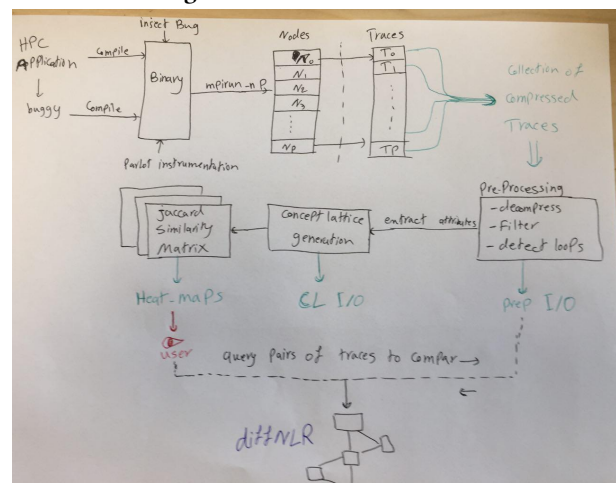 Insect Bug
HPC
Application
Compile
buggy
Compile
Binary
ParLoT instrumentation
mpirun -n P
Nodes
N0
N1
N2
N3
NP
Traces
T0
T1
TP
Collection of
Compressed
Traces
Pre-Processing
- decompress
- Filter
- detect loops
extract attributes
Concept lattice
generation
Jaccard
Similarity
Matrix
Heat-maps
CL I/O
prep I/O
user
query pairs of traces to compar
diffNLR